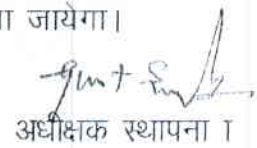 ा जायेगा।
अधीक्षक स्थापना I